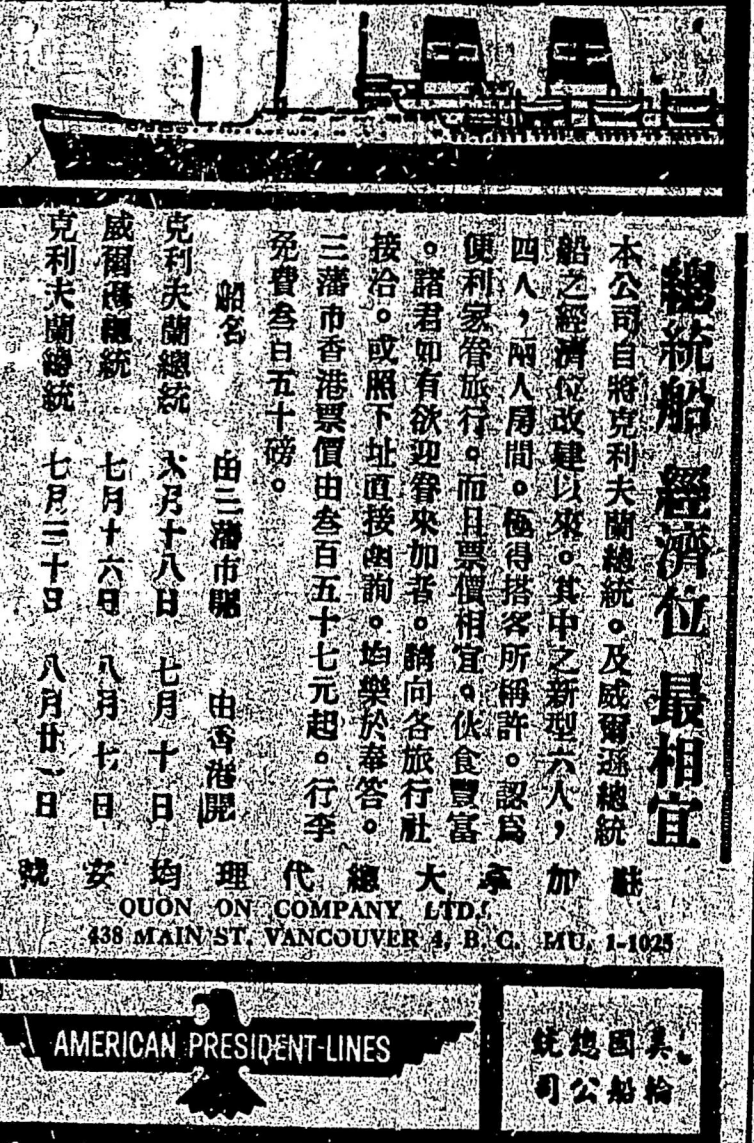 總統船 經濟位 最相宜
本公司自將克利夫蘭總統。及威爾遜總統
船之經濟位改建以來。其中之新型六人，
四人，兩人房間。極得搭客所稱許。認爲
便利家眷旅行。而且票價相宜。伙食豐富
。諸君如有欲迎眷來加者。請向各旅行社
接洽。或照下址直接函詢。均樂於奉答。
三藩市香港票價由叁百五十七元起。行李
免費叁百五十磅。
船名 由三藩市開 由香港開
克利夫蘭總統 六月十八日 七月十日
威爾遜總統 七月十六日 八月七日
克利夫蘭總統 七月三十日 八月廿一日
駐加拿大總代理均安號
QUON ON COMPANY LTD.
438 MAIN ST. VANCOUVER 4, B. C. MU. 1-1025
AMERICAN PRESIDENT LINES
美國總統
輪船公司